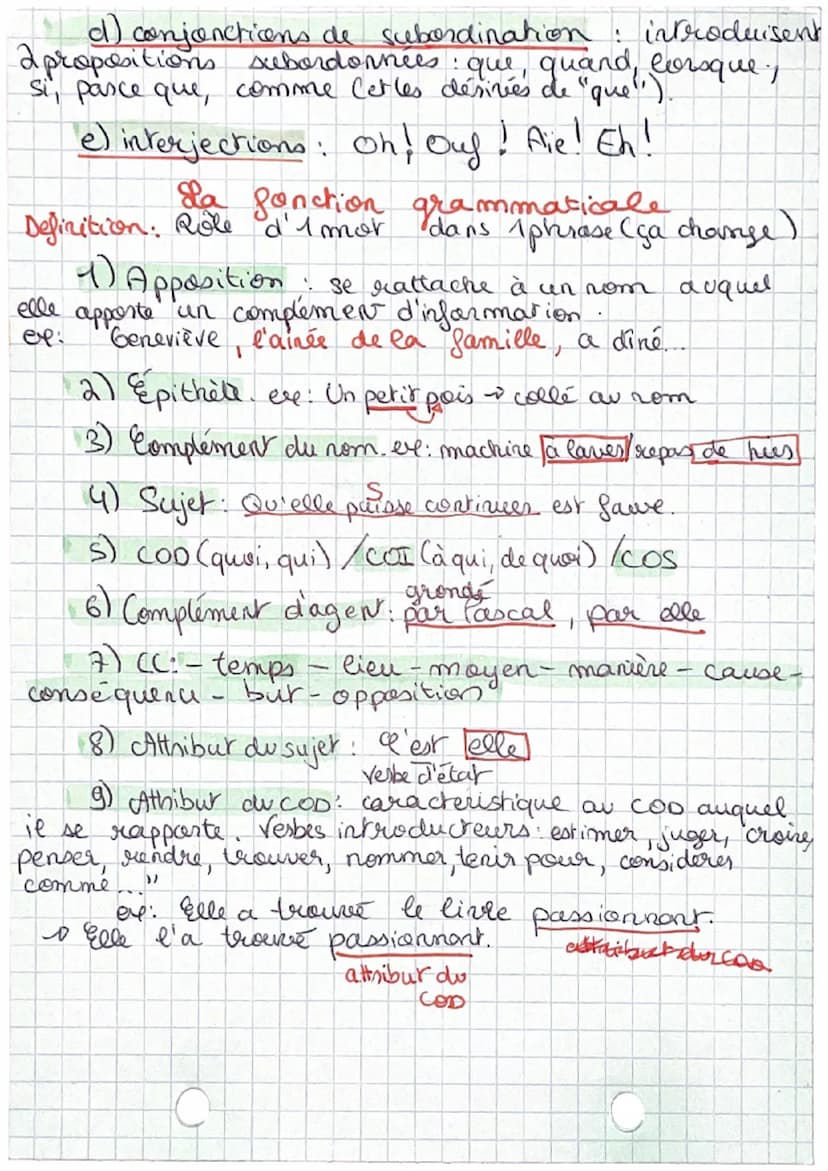 d) conjonctions de subordination : introduisent
2 propositions subordonnées : que, quand, lorsque,
si, parce que, comme (et les dérivés de "que").
e) interjections : Oh! Ouf ! Aïe! Eh!
La fonction grammaticale
Definition: Rôle d'1 mot dans 1 phrase (ça change)
1) Apposition : se rattache à un nom auquel
elle apporte un complément d'information.
ex: Geneviève, l'aînée de la famille, a dîné...
2) Épithète. ex: Un petit pois → collé au nom
3) Complément du nom. ex: machine à laver/repas de hier
S
4) Sujet: Qu'elle puisse continuer est fauve.
5) COD (quoi, qui) /COI (à qui, de quoi) /COS
grondé
6) Complément d'agent: par Pascal, par elle
7) CC: - temps - lieu - moyen - manière - cause -
conséquence - but - opposition
8) Attribut du sujet : C'est elle
verbe d'état
9) Attribut du COD: caractéristique au COD auquel
il se rapporte. Verbes introducteurs: estimer, juger, "croire,
penser, rendre, trouver, nommer, tenir pour, considérer
comme..."
ex: Elle a trouvé le livre passionnant.
→ Elle l'a trouvé passionnant. attribut du COD
attribut du
COD